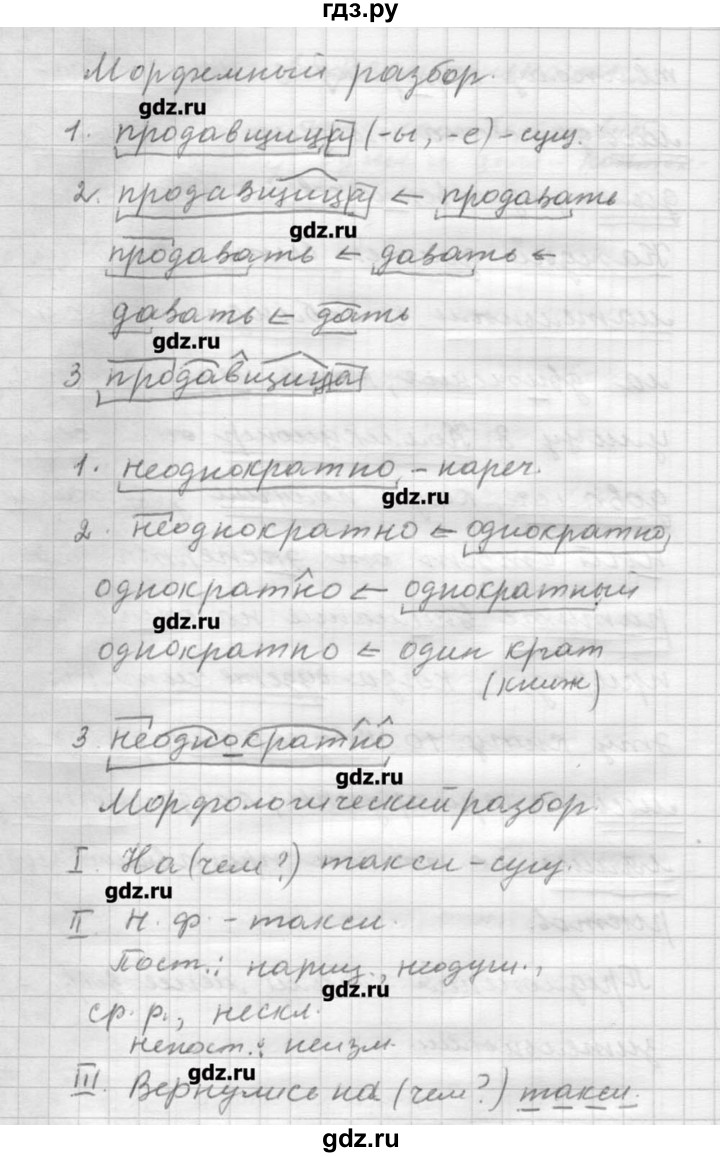 гдз.ру
Морфемный разбор.
gdz.ru
1. продавщица (-ы, -е) - сущ.
2. продавщица ← продавать
gdz.ru
продавать ← давать ←
давать ← дать
gdz.ru
3 продавщица
1. неоднократно, - нареч.
gdz.ru
2. неоднократно ← однократно
однократно ← однократный
gdz.ru
однократно ← один крат
(книж)
3. неоднократно
gdz.ru
Морфологический разбор.
I. На (чем?) такси - сущ.
gdz.ru
II Н. ф. - такси.
Пост.: нариц., неодуш.,
gdz.ru
ср. р., нескл.
непост.: неизм.
gdz.ru
III. Вернулись на (чем?) такси.
gdz.ru